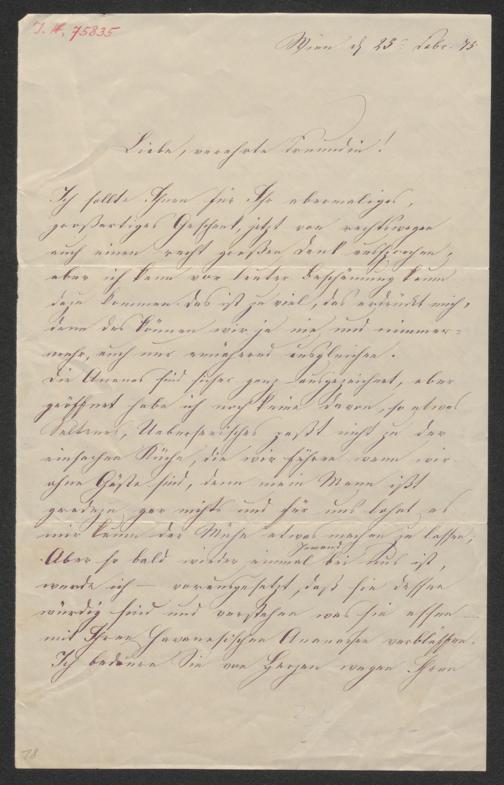 J. N. 75835
Wien d 25t Febr. 75
Liebe, verehrte Freundin!
Ich sollte Ihnen für Ihr abermaliges,
großartiges Geschenk, jetzt von rechtswegen
auch einen recht großen Dank aussprechen,
aber ich kann vor lauter Beschämung kaum
dazu kommen das ist zu viel, das erdrückt mich,
denn das können wir ja nie und nimmer=
mehr, auch nur annähernd ausgleichen.
Die Ananas sind sicher ganz ausgezeichnet, aber
geöffnet habe ich noch keine davon, so etwas
Seltenes, Ueberseeisches paßt nicht zu der
einfachen Küche, die wir führen wenn wir
ohne Gäste sind, denn mein Mann ißt
geradezu gar nichts und für uns lohnt es
mir kaum der Mühe etwas machen zu lassen,
Aber so bald wieder einmal Jemand bei uns ist,
werde ich – vorausgesetzt, daß sie dessen
würdig sind und verstehen was sie essen –
mit Ihren Havanesischen Ananassen verblüffen.
Ich bedaure Sie von Herzen wegen Ihren
78